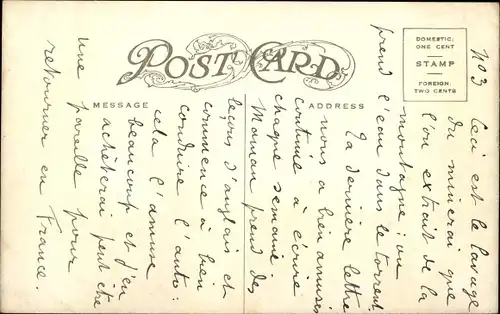 POST CARD
MESSAGE
ADDRESS
DOMESTIC:
ONE CENT
STAMP
FOREIGN:
TWO CENTS
No 3 Ceci est le lavage
du minerai que
l'on extrait de la
montagne; on
prend l'eau dans le torrent
Ta dernière lettre
nous a bien amusés
continue à écrire
chaque semaine.
Maman prend des
leçons d'anglais et
commence à bien
conduire l'auto:
cela l'amuse
beaucoup et j'en
achèterai peut être
une pareille pour
retourner en France.